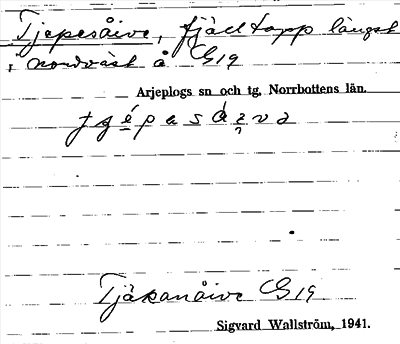 Tjepesåive, fjälltopp längst
i nordväst å G19
Arjeplogs sn och tg, Norrbottens län.
Tjåkanåive G19
Sigvard Wallström, 1941.